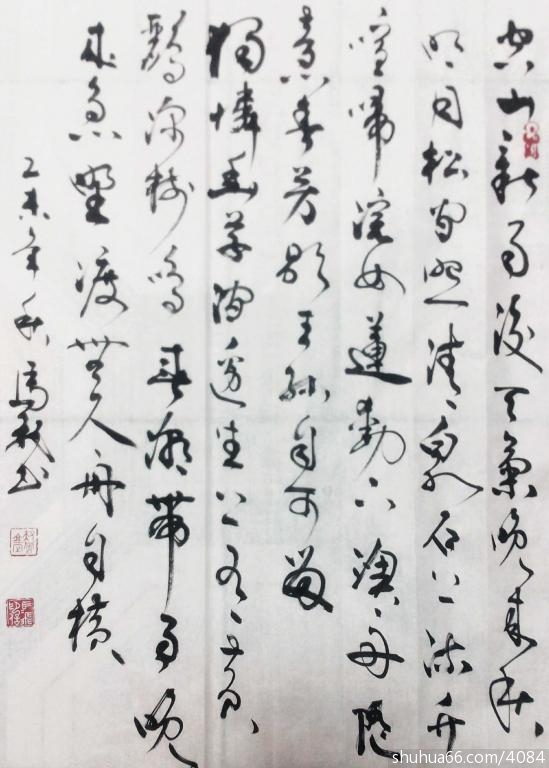 空山新雨後天氣晚來秋
明月松間照清泉石上流竹
喧歸浣女蓮動下漁舟隨
意春芳歇王孫自可留
獨憐幽草澗邊生上有黄
鸝深樹鳴春潮帶雨晚
來急野渡無人舟自横
乙未年秋馬书
shuhua66.com/4084